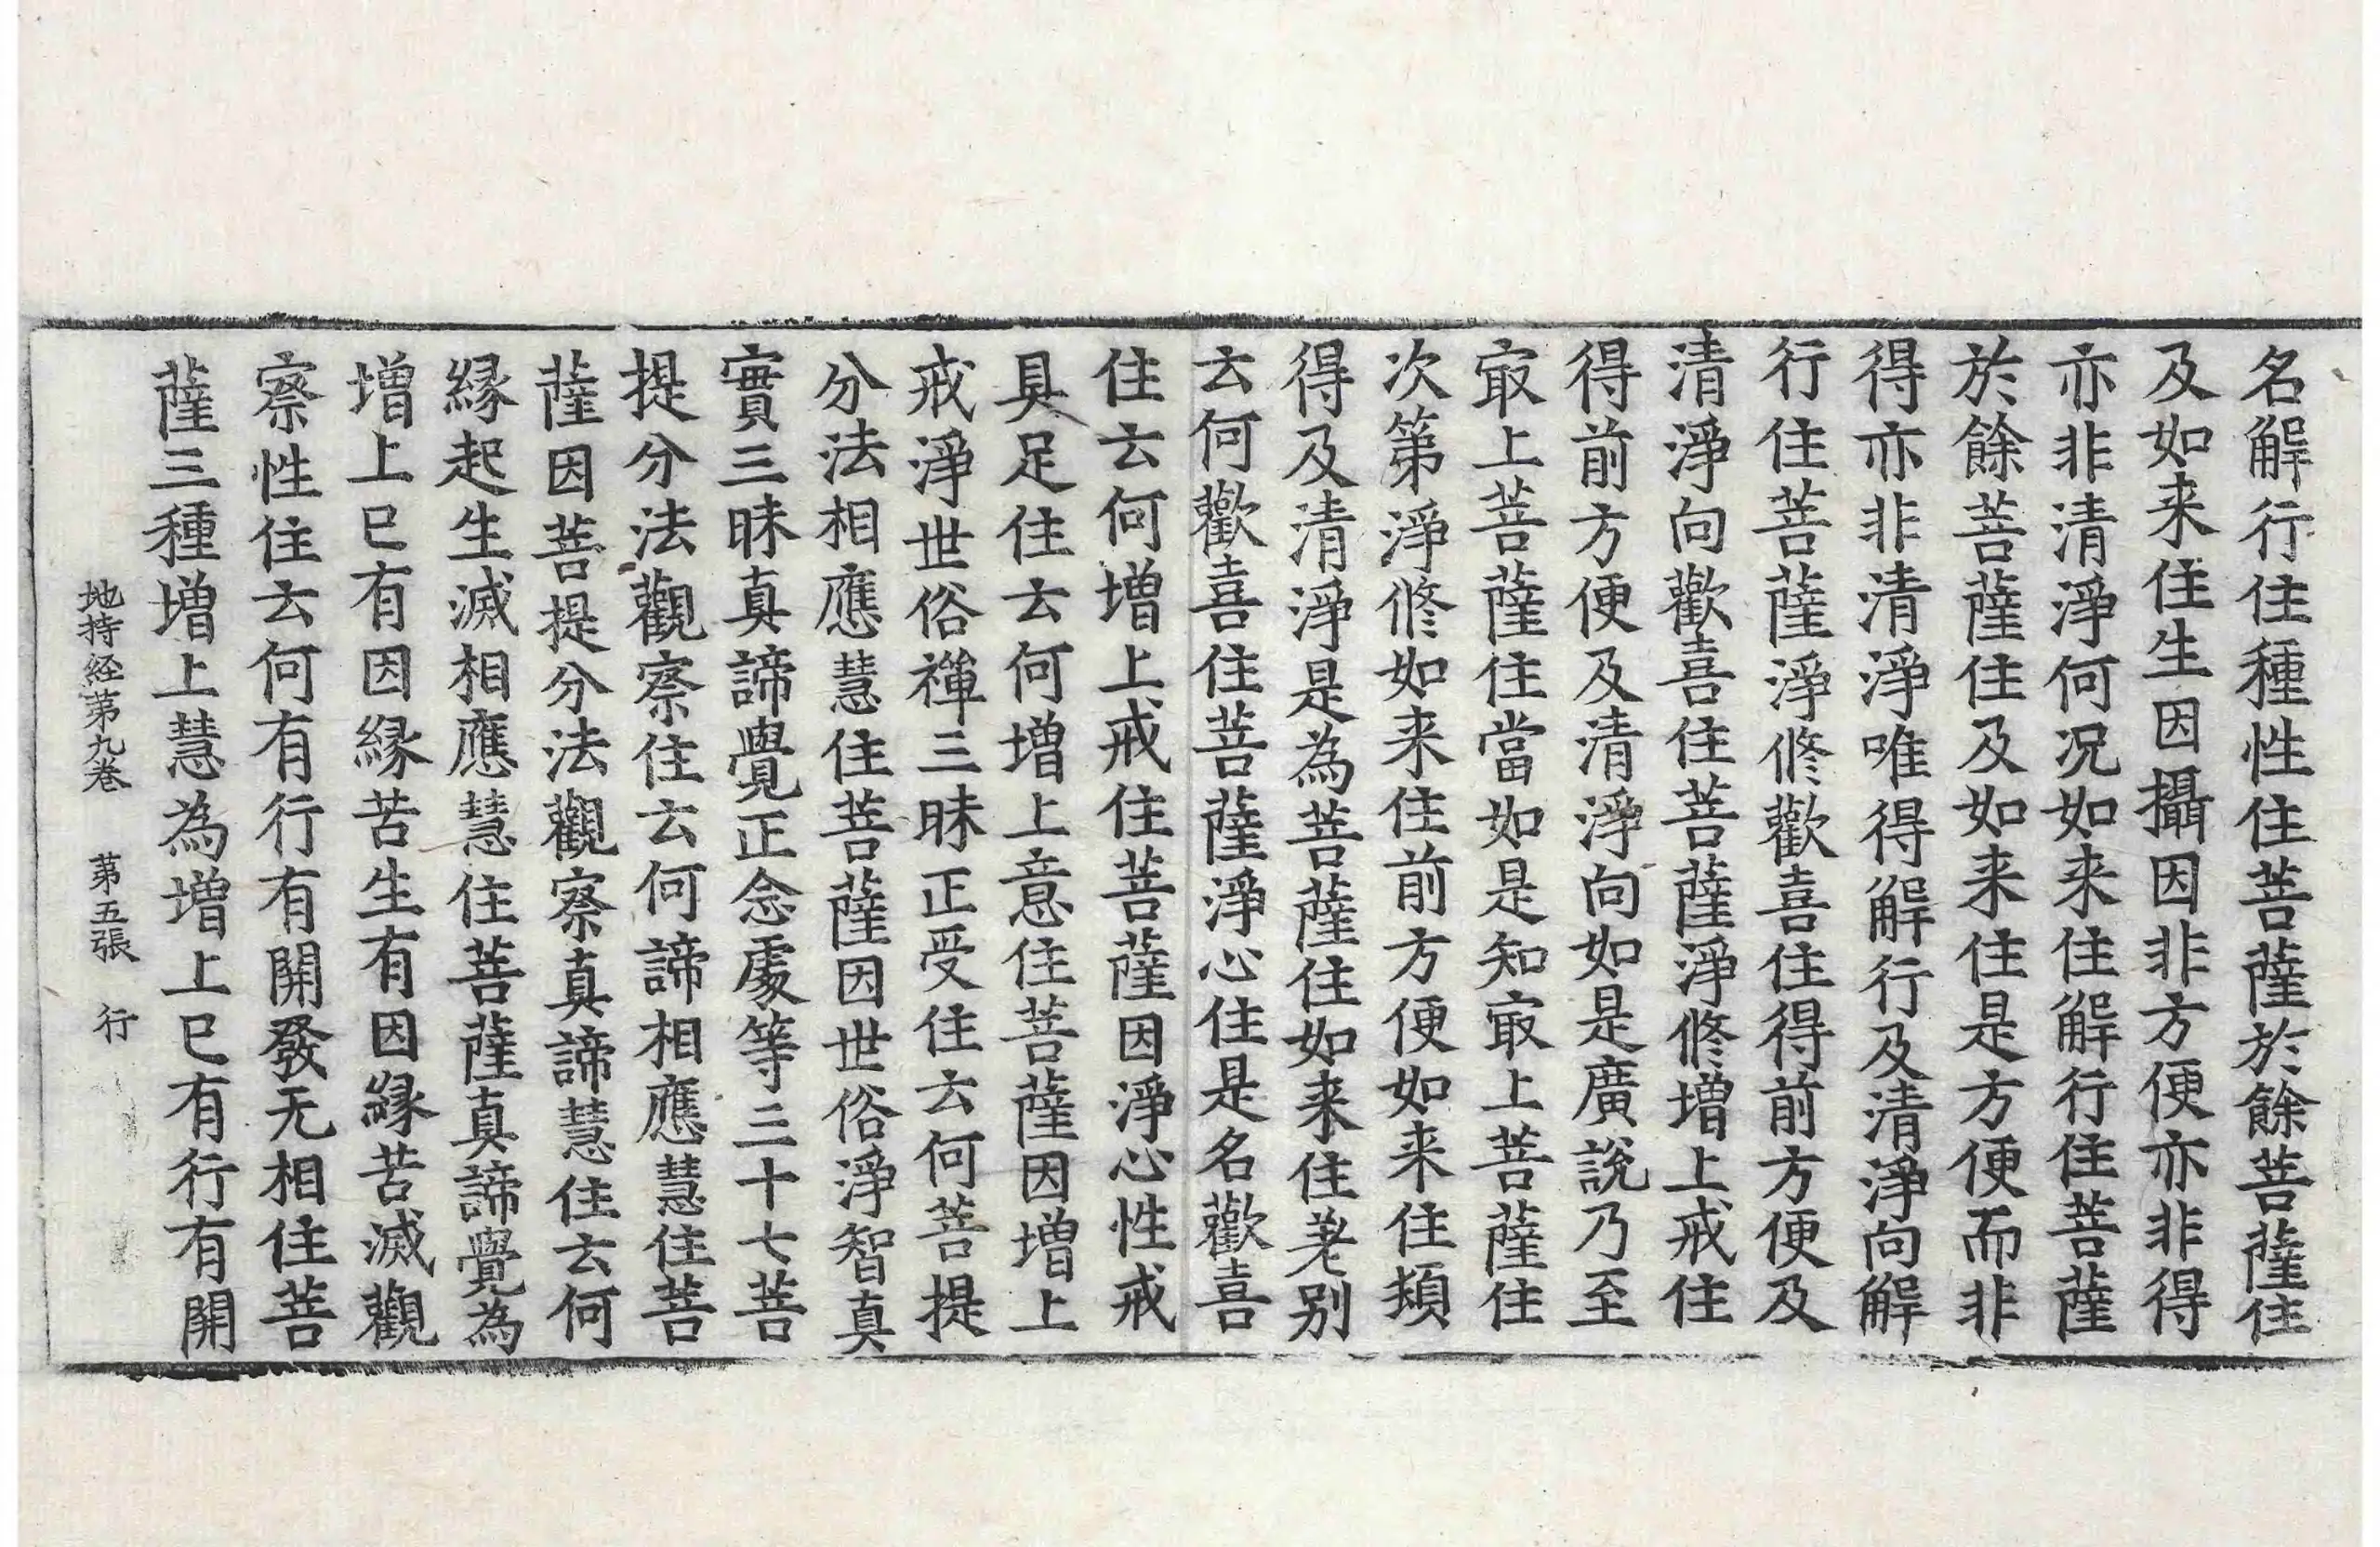 名解行住種性住菩薩於餘菩薩住
及如来住生因攝因非方便亦非得
亦非清淨何况如来住解行住菩薩
於餘菩薩住及如来住是方便而非
得亦非清淨唯得解行及清淨向解
行住菩薩淨修歡喜住得前方便及
清淨向歡喜住菩薩淨修增上戒住
得前方便及清淨向如是廣說乃至
㝡上菩薩住當如是知㝡上菩薩住
次第淨修如来住前方便如来住頻
得及清淨是為菩薩住如来住差别
云何歡喜住菩薩淨心住是名歡喜
住云何增上戒住菩薩因淨心性戒
具足住云何增上意住菩薩因增上
戒淨世俗禪三昧正受住云何菩提
分法相應慧住菩薩因世俗淨智真
實三昧真諦覺正念處等三十七菩
提分法觀察住云何諦相應慧住菩
薩因菩提分法觀察真諦慧住云何
緣起生滅相應慧住菩薩真諦覺為
增上已有因緣苦生有因緣苦滅觀
察性住云何有行有開發无相住菩
薩三種增上慧為增上已有行有開
地持経第九卷 第五張 行